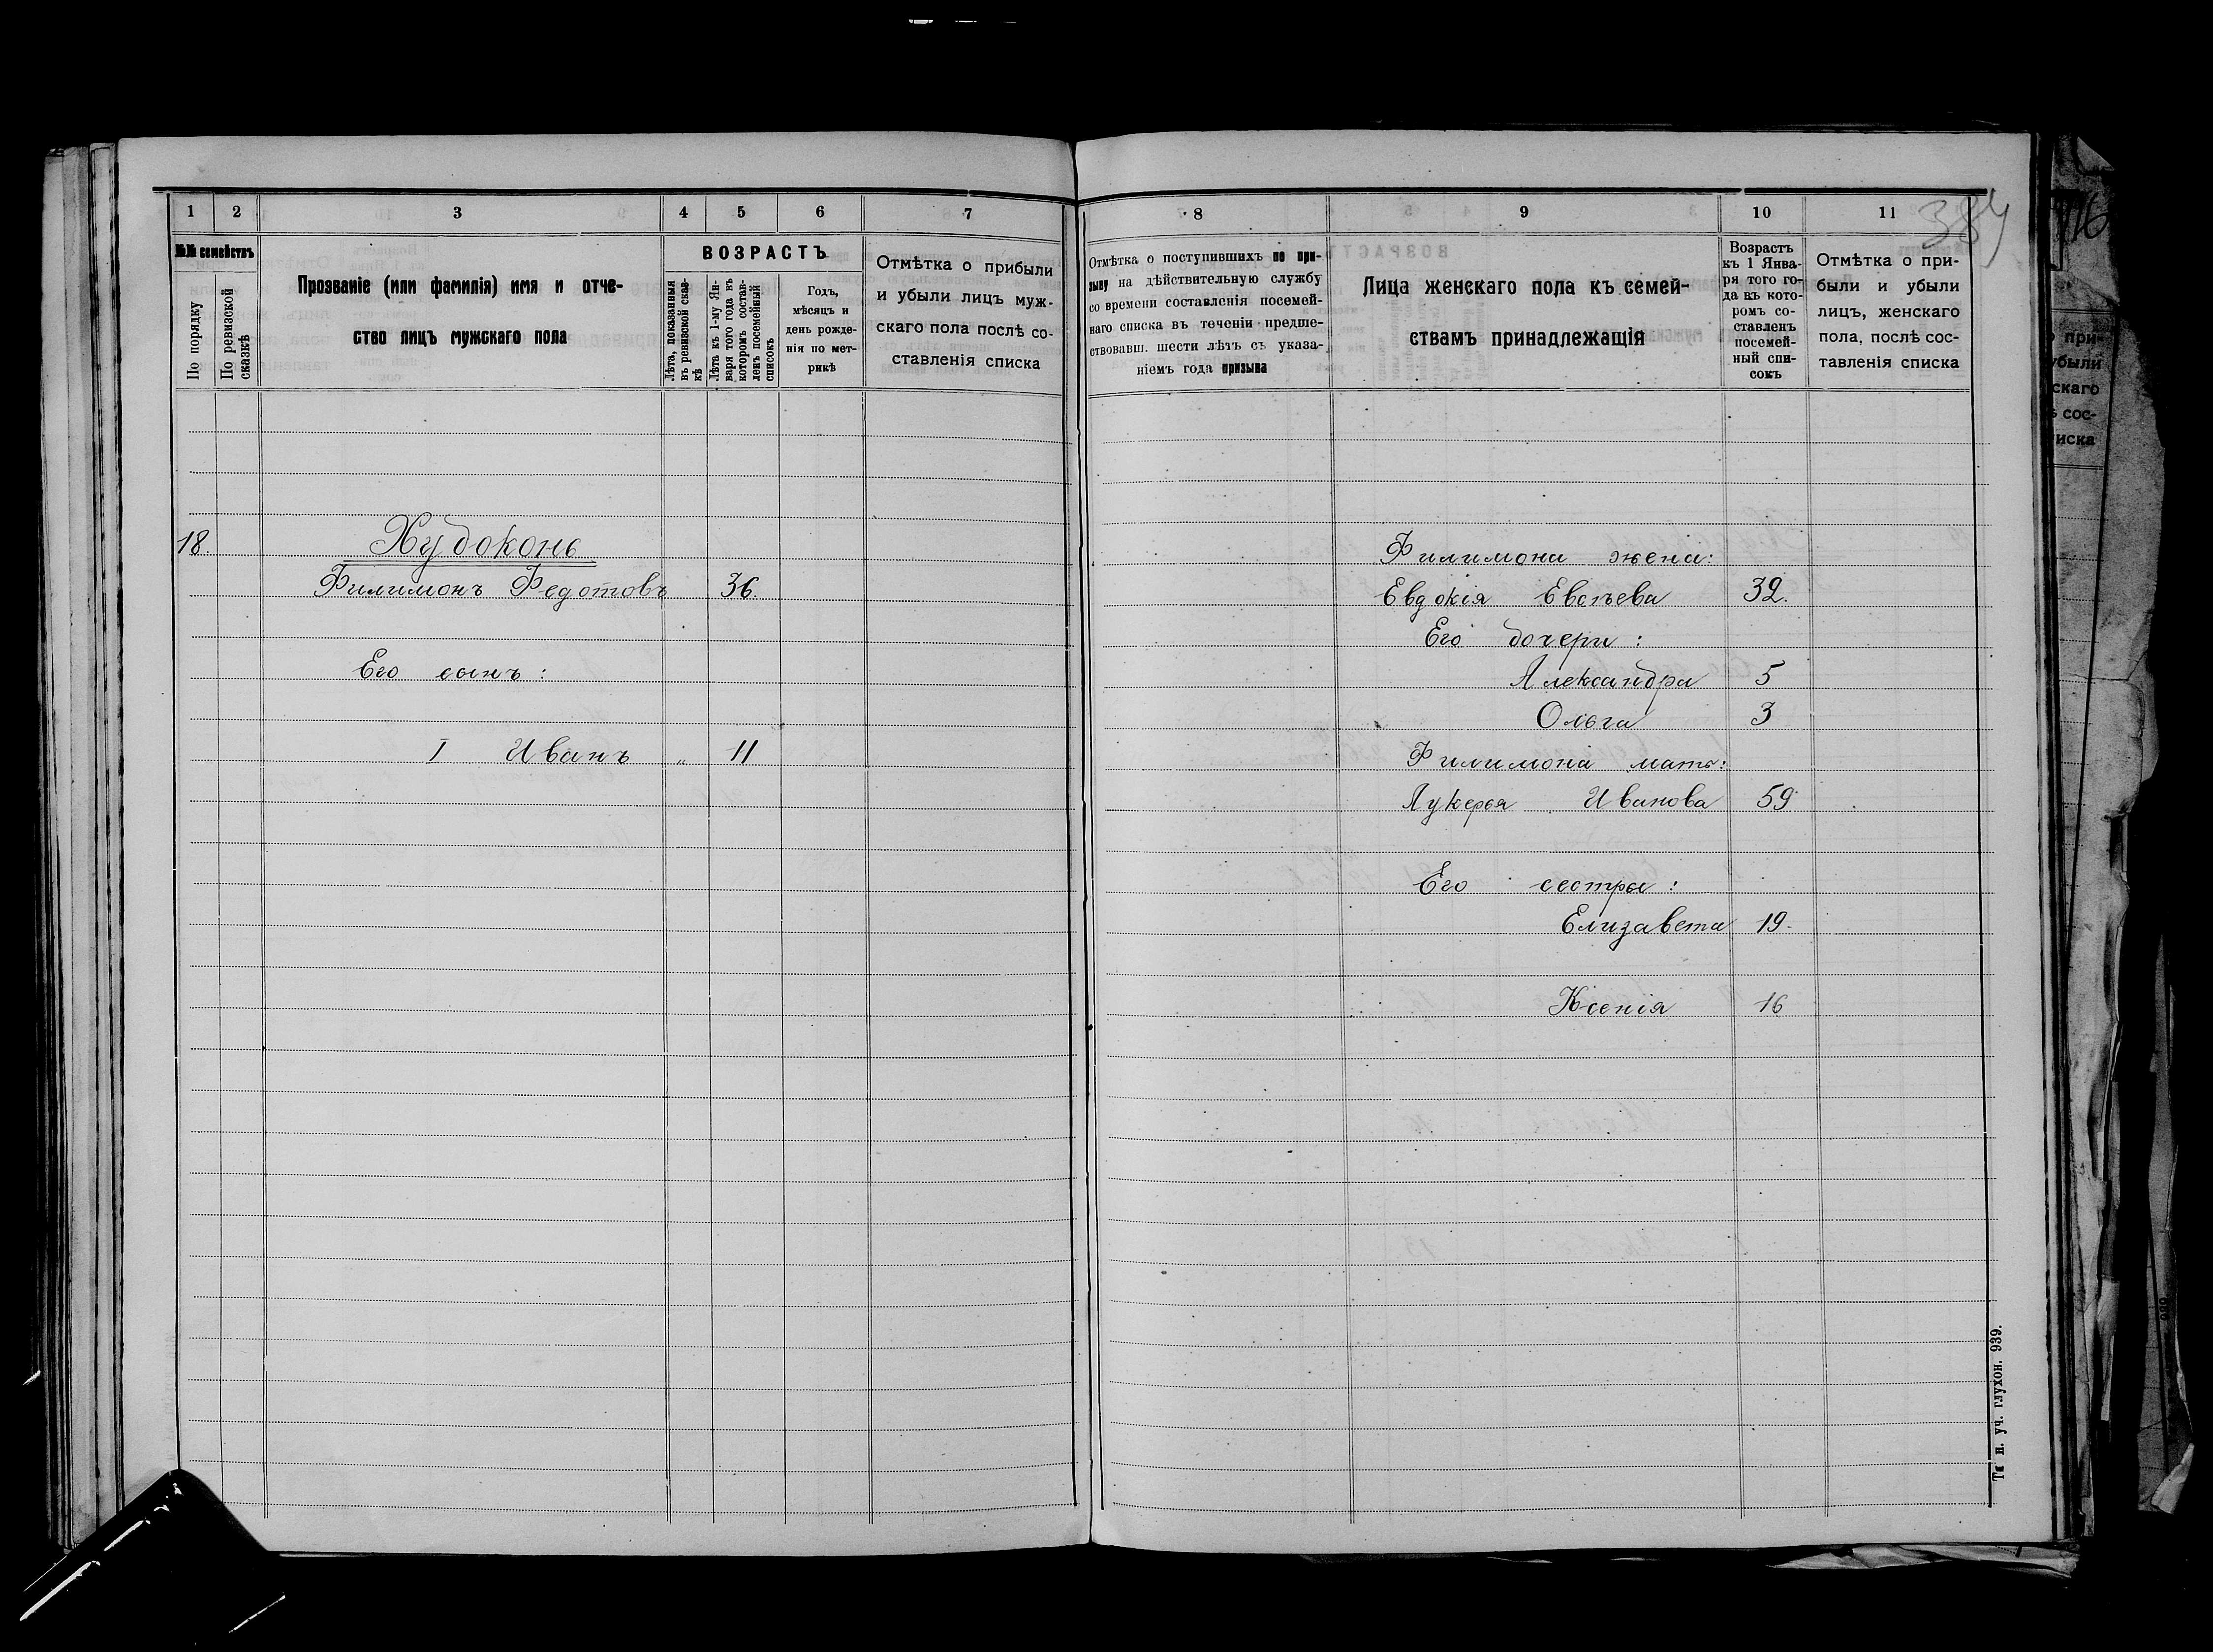 1 2 3 4 5 6 7
№№ семействъ
По порядку
По ревизской сказкѣ
Прозваніе (или фамилія) имя и отче-
ство лицъ мужскаго пола
ВОЗРАСТЪ
Лѣта, показанныя
въ ревизской сказ-
кѣ
Лѣта къ 1-му Ян-
варя того года въ
которомъ состав-
ленъ посемейный
списокъ
Годъ,
мѣсяцъ и
день рожде-
нія по мет-
рикѣ
Отмѣтка о прибыли
и убыли лицъ муж-
скаго пола послѣ со-
ставленія списка
18. Худоконь
Филимонъ Федотовъ 36.
Его сынъ:
I Иванъ „ 11
8 9 10 11
384
Отмѣтка о поступившихъ по при-
зыву на дѣйствительную службу
со времени составленія посемей-
наго списка въ теченіи предше-
ствовавш. шести лѣтъ съ указа-
ніемъ года призыва
Лица женскаго пола къ семей-
ствамъ принадлежащія
Возрастъ
къ 1 Янва-
ря того го-
да въ кото-
ромъ со-
ставленъ
посемей-
ный спи-
сокъ
Отмѣтка о при-
были и убыли
лицъ, женскаго
пола, послѣ сос-
тавленія списка
Филимона жена:
Евдокія 32.
Его дочери:
Александра 5
Ольга 3
Филимона мать:
Лукерья Иванова 59
Его сестры:
Елизавета 19.
Ксенія 16
уч. глухон. 939.
16
при-
убыли
скаго
сос-
иска